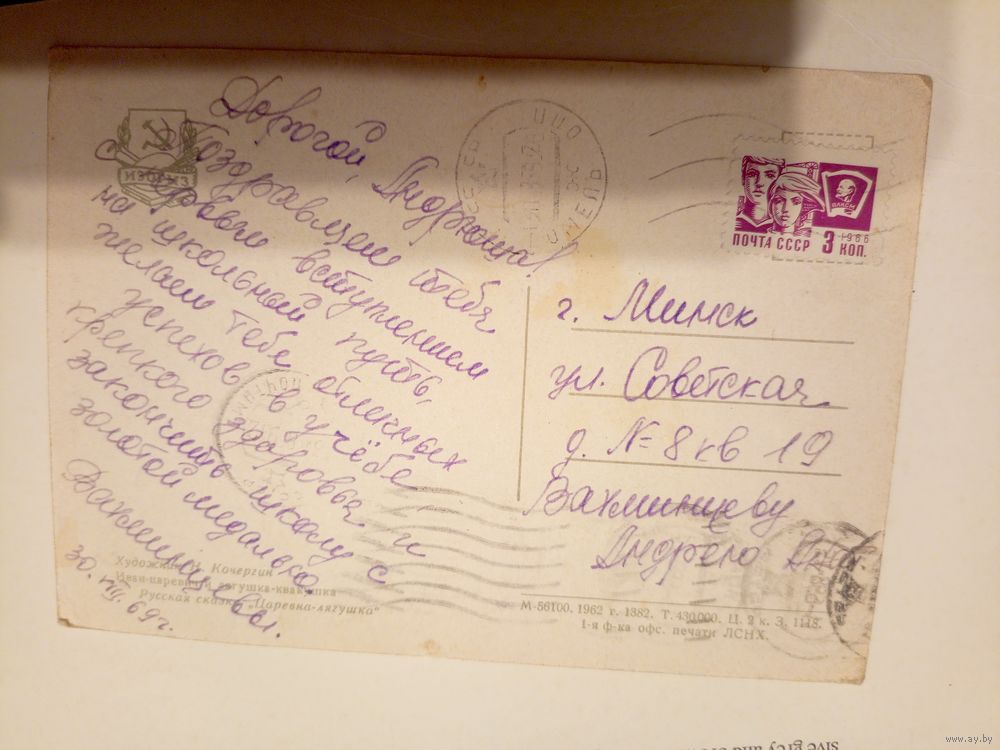 Дорогой, Андрюша!
Поздравляем тебя
с первым вступлением
на школьный путь,
желаем тебе отличных
успехов в учёбе
крепкого здоровья и
закончить школу с
золотой медалью
30. VIII. 69г.
ИЗОГИЗ
Художник Н. Кочергин
Иван-царевич и лягушка-квакушка
Русская сказка "Царевна-лягушка"
СССР
ПОЧТА СССР 3 КОП.
1966
ВЛКСМ
г. Минск
ул. Советская
д. № 8 кв 19
Вахминцеву
Андрею
М-56100. 1962 г. 1382. Т. 430.000. Ц. 2 к. З. 1118.
1-я ф-ка офс. печати ЛСНХ.
www.ay.by